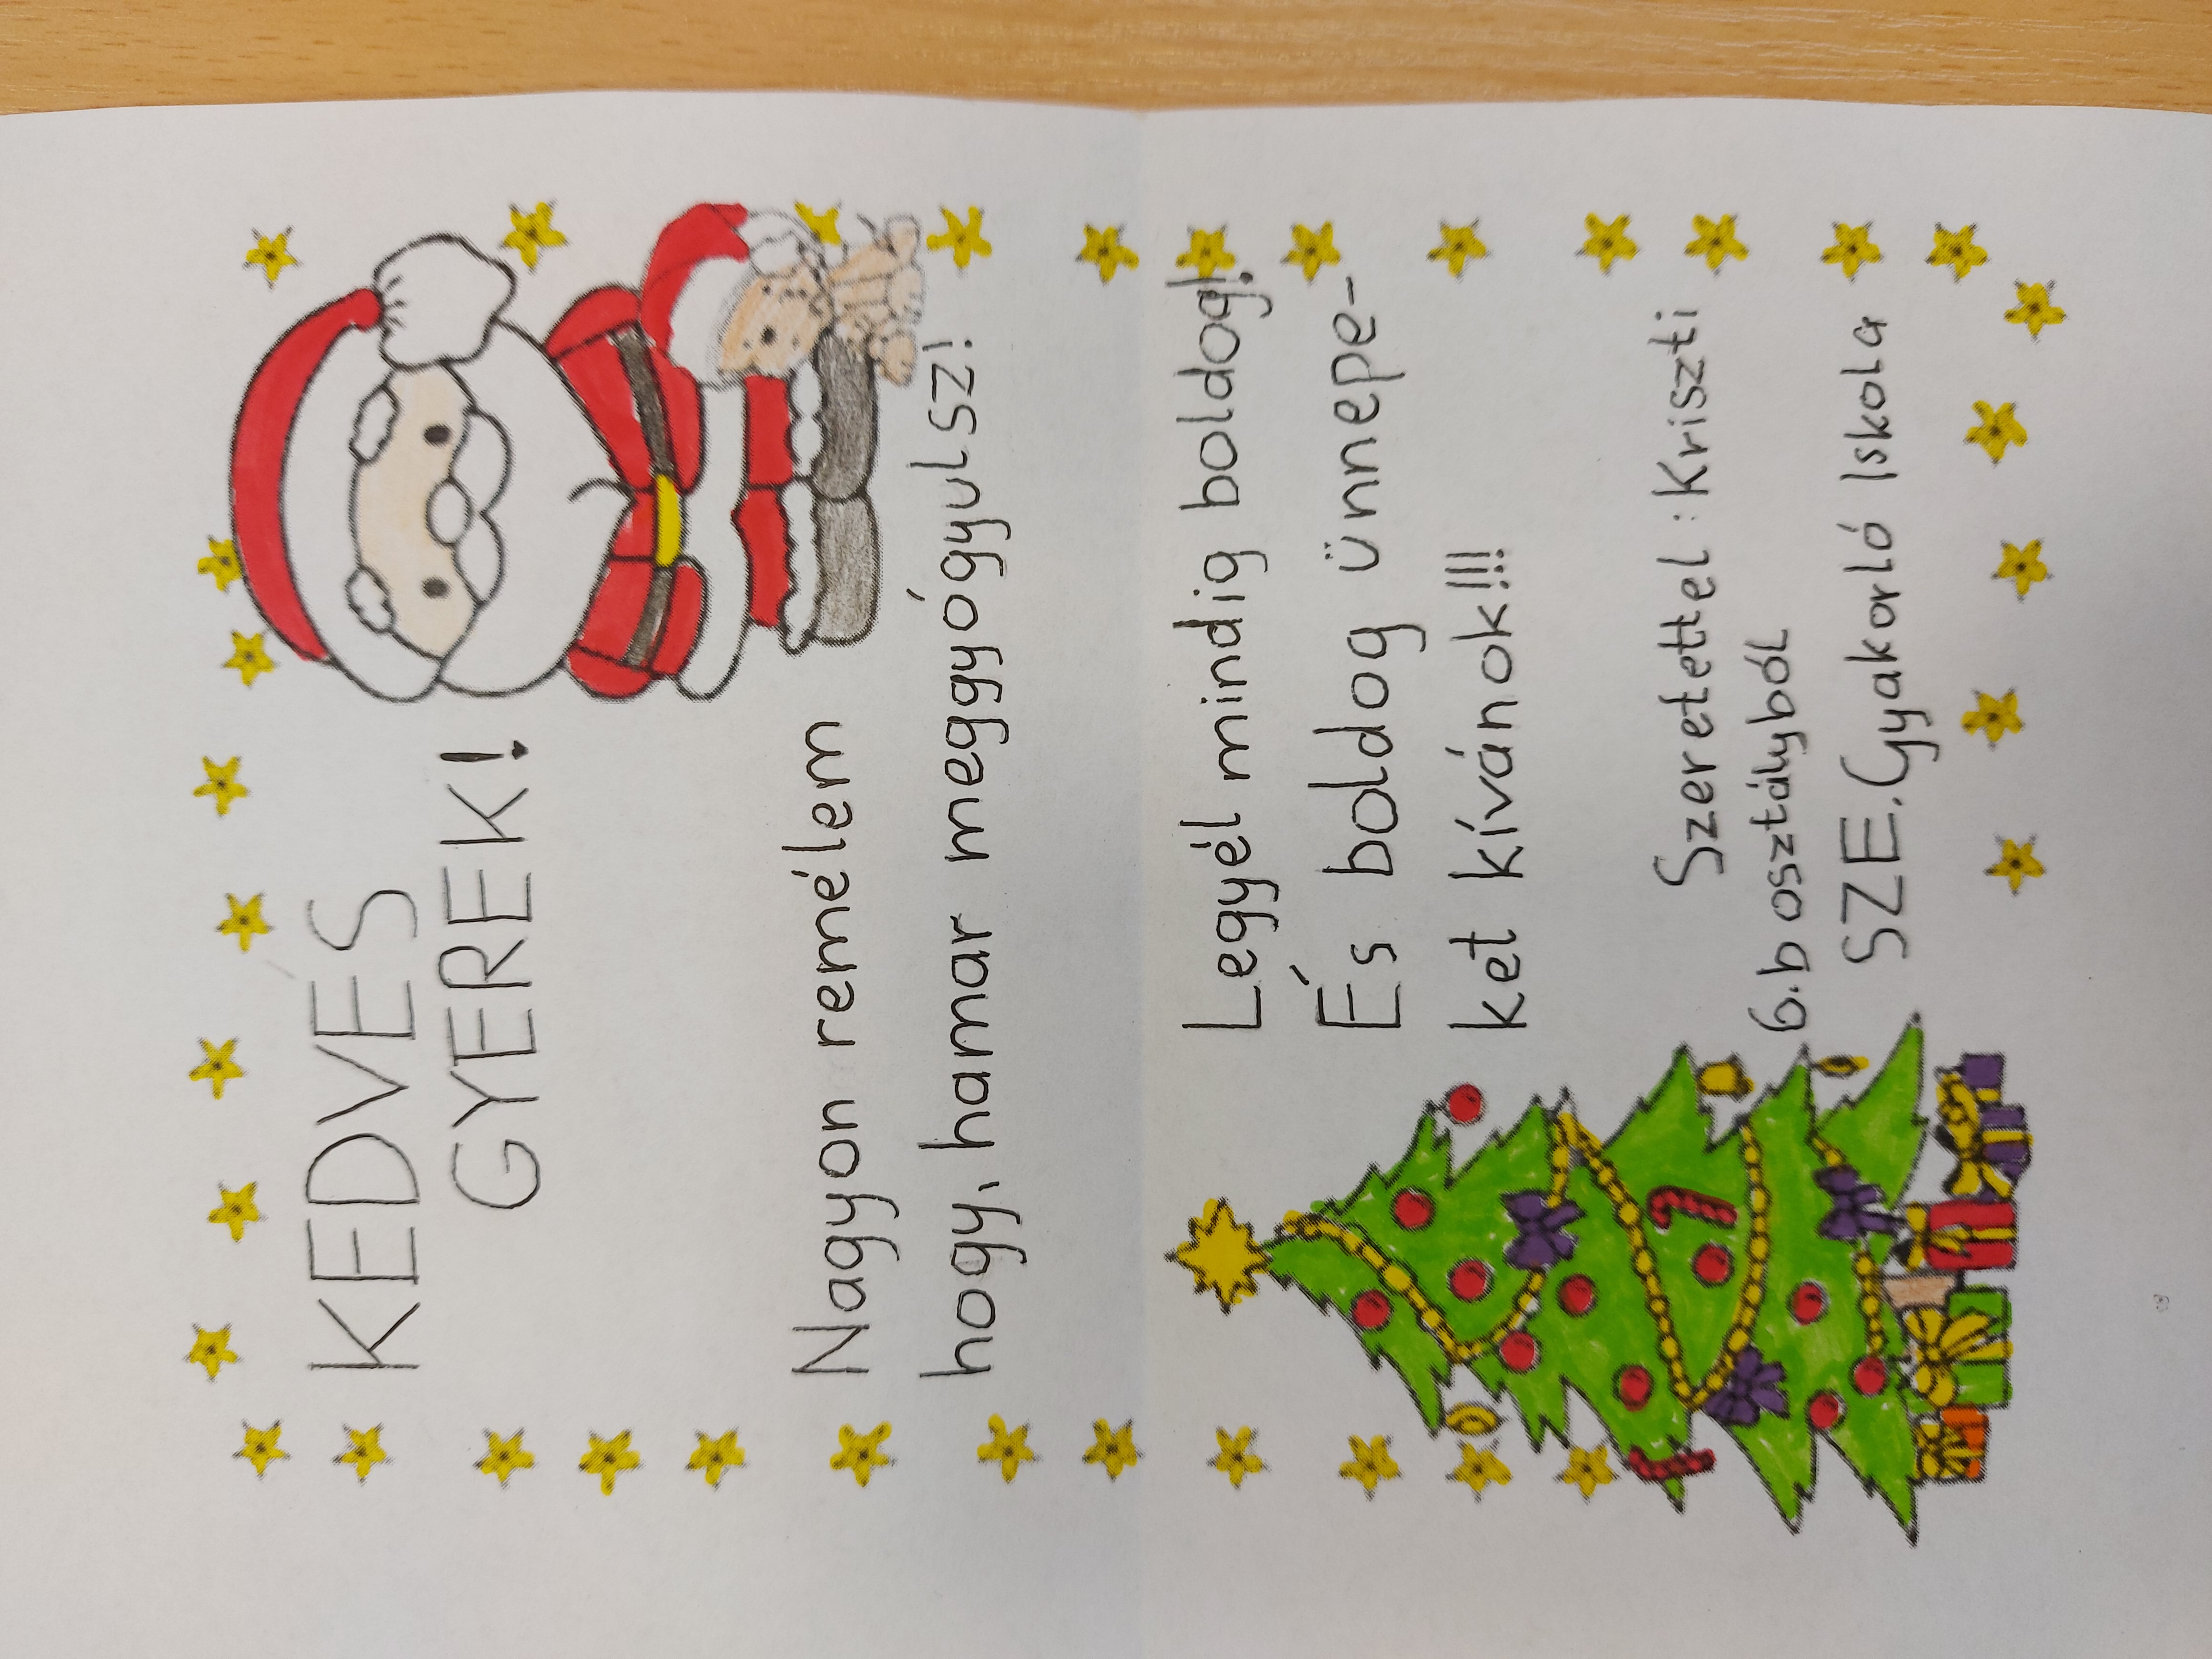 KEDVES
GYEREK!
Nagyon remélem
hogy, hamar meggyógyulsz!
Legyél mindig boldog!
És boldog ünnepe-
ket kívánok!!!
Szeretettel : Kriszti
6.b osztályból
SZE. Gyakorló Iskola